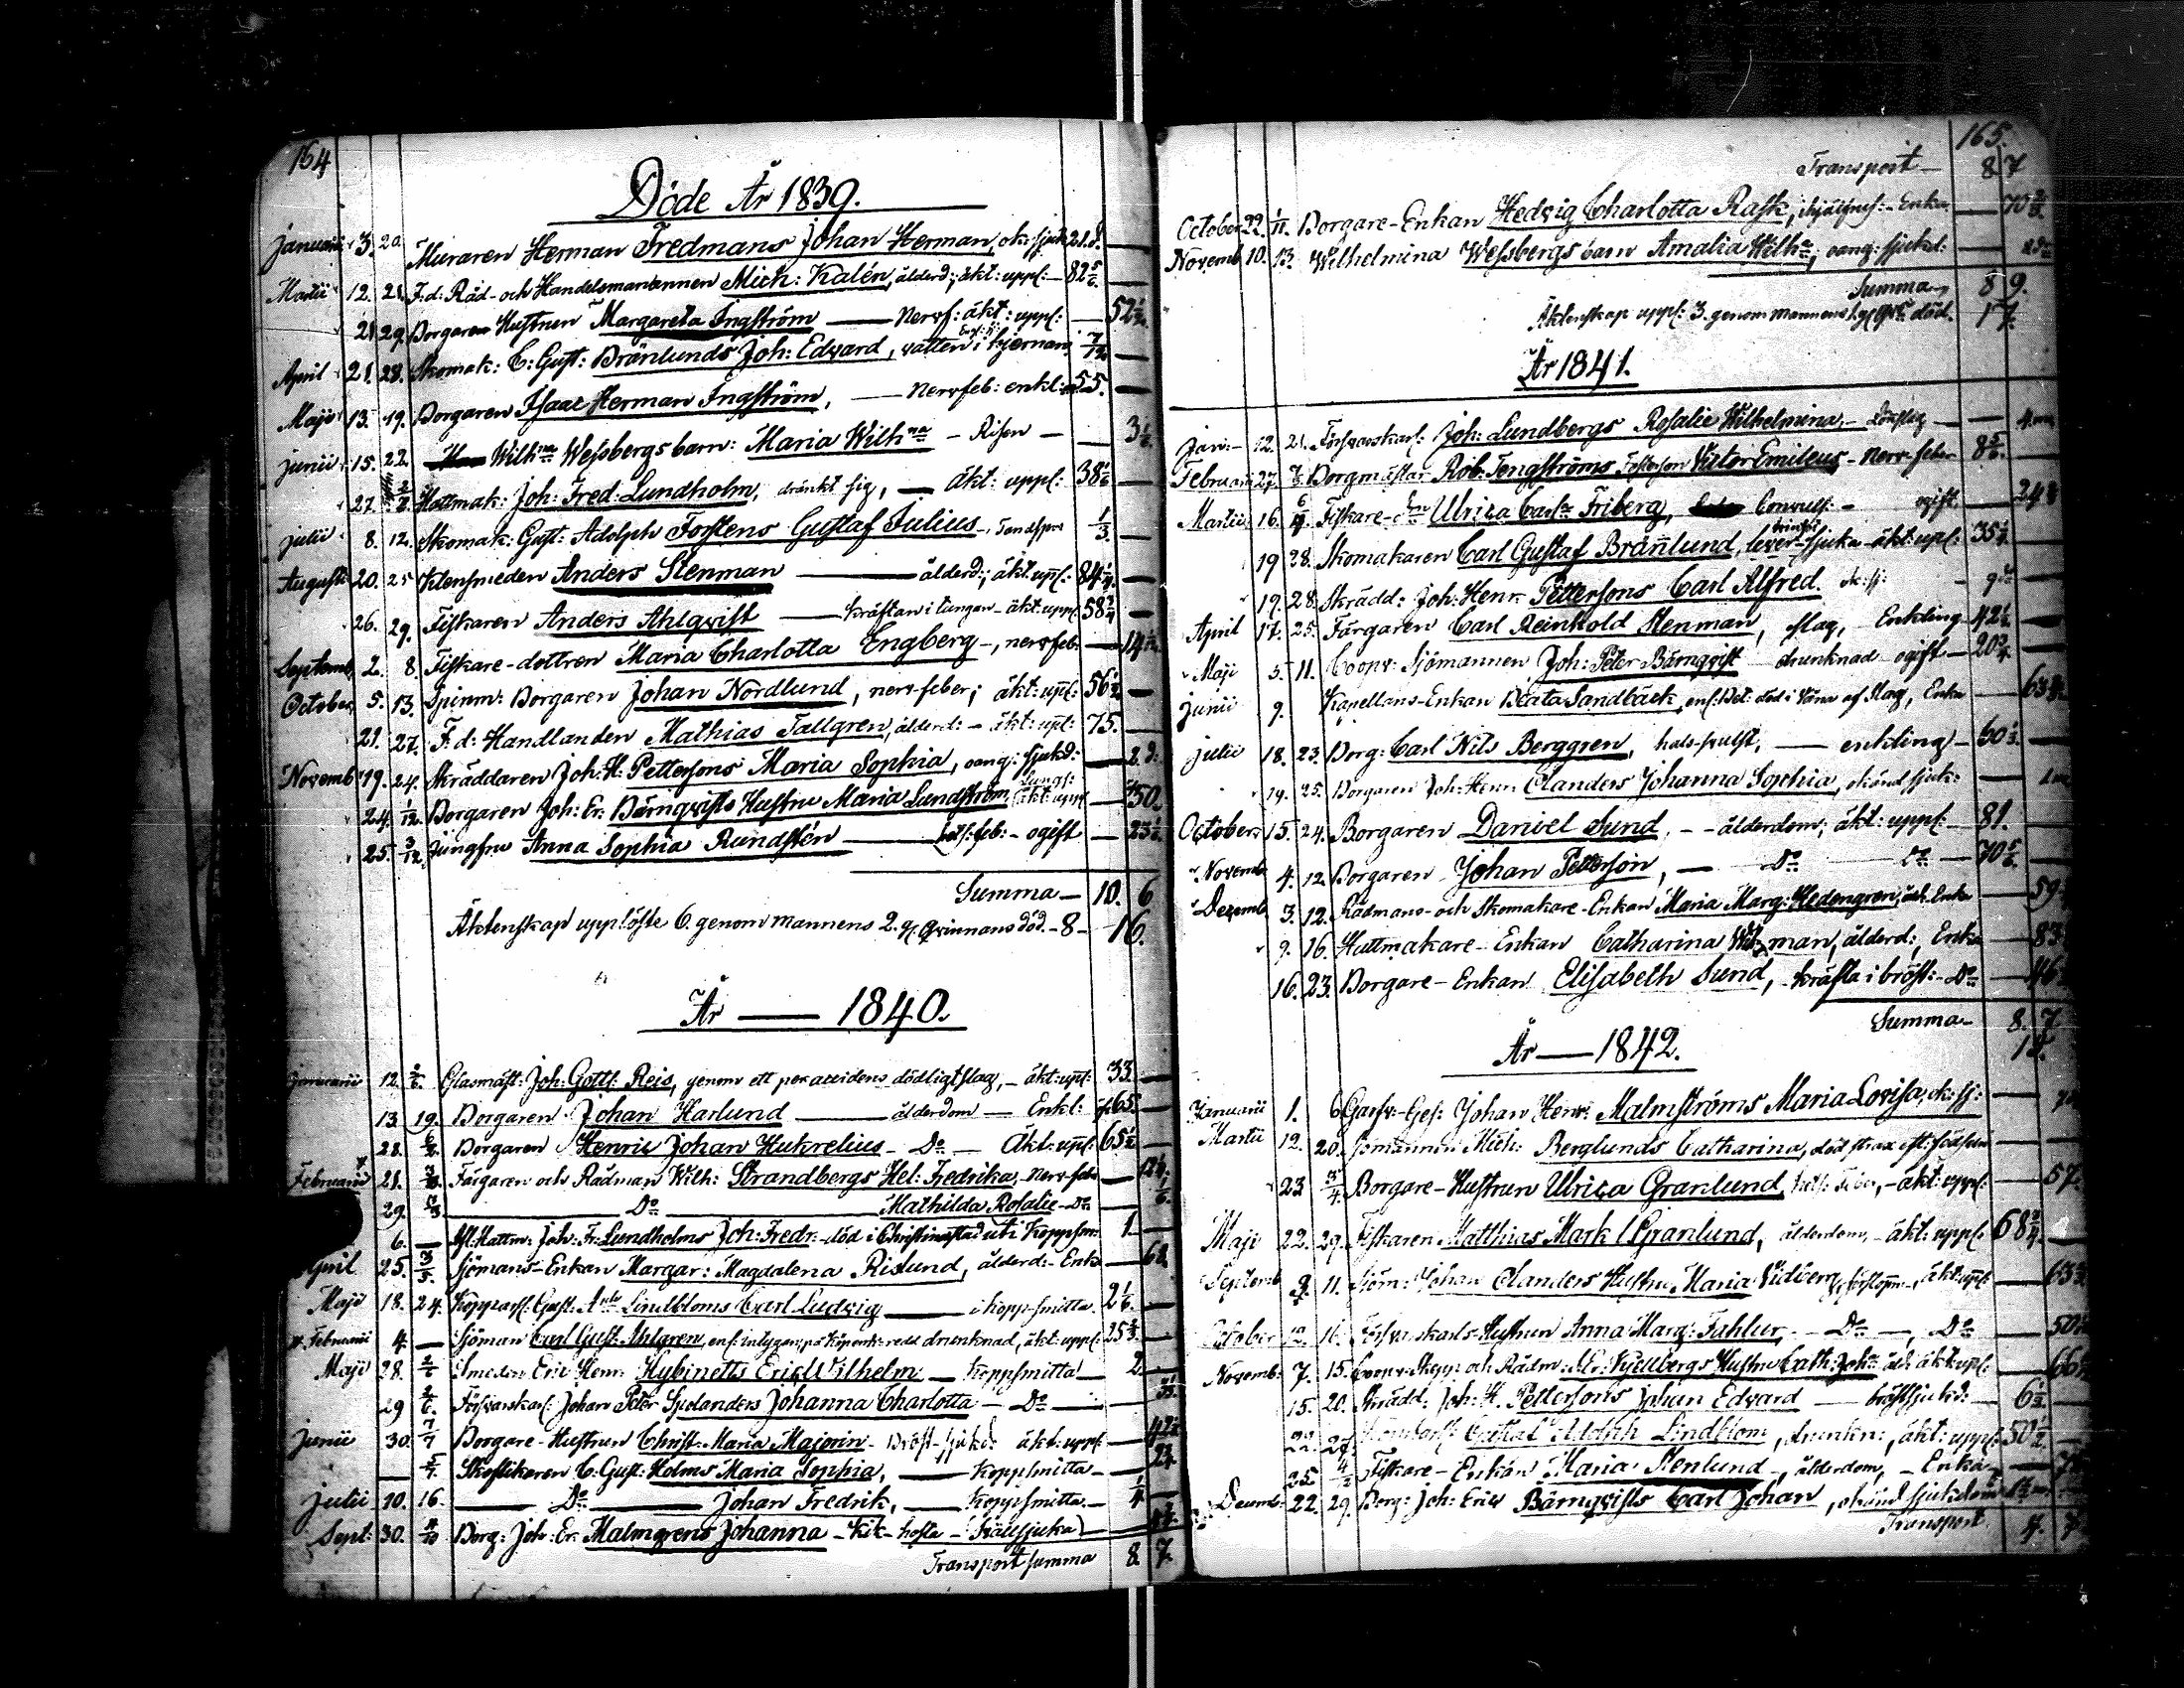 164
Döde År 1839.
Januarii 3. 20. Muraren Herman Fredmans Johan Herman, ok: sjuk 21.d. —
Martii 12. 21. F.d. Råd- och Handelsmannen Mich: Kalén, ålderd:, äkt: uppl: — 82 5/6. —
21 29. Borgaren Hustrun Margareta Ingström — Nervf: äkt: uppl: — 52 1/2.
April 21. 28. Skomak: C: Gust: Bränlunds Joh: Edvard, vatten i hjernan 7/12 —
Maji 13. 19. Borgaren Isaac Herman Ingström, — Nervfeb: enkl: 55. —
Junii 15. 22. Wilhna Wessbergs barn: Maria Wilhna — Risen — — 3 1/6.
27. 2/7 Hattmak: Joh: Fred: Lundholm, dränkt sig, — äkt: uppl: 38 1/6 —
Julii 8. 12. Skomak: Gust: Adolph Forstens Gustaf Julius — 1/3. —
Augusti 20. 25 Klensmeden Anders Stenman — ålderd:, äkt: uppl: 84 1/4. —
26. 29. Fiskaren Anders Ahlqvist — kräftan i tungan — äkt: uppl: 58 3/4 —
Septemb. 2. 8. Fiskare-dottren Maria Charlotta Engberg —, nervfeb: — 14
October 5. 13. Borgaren Johan Nordlund, nerv-feber; äkt: uppl: 56 1/2 —
21. 27. F.d: Handlanden Mathias Tallgren, ålderd: — äkt: upl: 75. —
Novemb 19. 24. Skräddaren Joh: H: Pettersons Maria Sophia, oang: sjukd: — 2 d:
24. 1/12. Borgaren Joh: Er: Bärnqvists Hustru Maria Lundström, Lungs: äkt: uppl — 50.
25. 3/12. Jungfru Anna Sophia Rundstén — feb: — ogift — 25 1/2
Summa — 10. 6
Äktenskap upplöste 6. genom mannens 2. gm Qvinnans död. — 8 — 16.
År — 1840.
Januarii 12. 2/6. Glasmäst: Joh: Gottl: Reis, genom ett per accidens dödligt slag, — äkt: upl: 33. —
13 19. Borgaren Johan Harlund — ålderdom — Enkl: 65. —
28. 6/2. Borgaren Henric Johan Hukrelius — Do — Äkt: upl: 65 1/2 —
Februarii 21. Färgaren och Rådman Wilh: Strandbergs Hel: Fredrika, nervfeb —
29. Do — Mathilda Rosalie — Do — 1/6.
6. — Hattm: Joh: Fr: Lundholms Joh: Fredr: död i Christinestad uti Koppsm: 1. —
April 25. 3/5 Sjömans-Enkan Margar: Magdalena Rislund, ålderd: — Enka — 62
Maji 18. 24. Gust: Lindbloms Carl Ludvig — i Kopp-smitta. 2 1/6. —
Februarii 4. — Sjöman Carl Gust: Ahlgren, drunknad, äkt: uppl: 25 —
Maji 28. 2/6 Smeden Eric Henr: Hybinetts Eric Wilhelm — Koppsmitta — 2. —
29 2/6. Försvarskarl: Johan Peter Sjelanders Johanna Charlotta — Do —
Junii 30. 7/7 Borgare-Hustrun Christ: Maria Majorin — Bröst-sjukd: äkt: uppl: — 42
— 5/7. Skoflikaren C: Gust: Holms Maria Sophia, — Koppsmitta —
Julii 10. 16. — Do — Johan Fredrik, — Koppsmitta — 1/4. —
Sept: 30. 4/10 Borg: Joh: Er: Malmgrens Johanna — Kik-hosta —
Transport summa 8. 7.
165.
Transport — 8 7
October 22. 1/11. Borgare-Enkan Hedvig Charlotta Rask, — Enka — 70
Novemb. 10. 13. Wilhelmina Wessbergs barn Amalia Wilhna, oang: sjukd: —
Summa 8 9.
Äktenskap uppl: 3. genom mannens 1. död. 17.
År 1841.
Jan: — 12. 21. Försvarskarl: Joh: Lundbergs Rosalie Wilhelmina, —
Februarii 27. Borgmästar Rob: Tengströms Victor Emileus — nerv-feber 8 5/6. —
Martii 16. Fiskare-Dn Ulrica Carln Friberg, Convuls: — ogift — 24
19 28. Skomakaren Carl Gustaf Branlund, lever-sjuka äkt: upl: 35 —
19. 28. Skrädd: Joh: Henr: Pettersons Carl Alfred —
April 17. 25. Färgaren Carl Reinhold Stenman, slag, Enkling 42 1/2. —
Maji 5. 11. Coopv: Sjömannen Joh: Peter Bärnqvist — drunknad — ogift — 20 —
Junii 9. Kapellans-Enkan Beata Sandbäck, död i af slag, Enka — 63
Julii 18. 23. Borg: Carl Nils Berggren, hals-svulst, — enkling — 50 —
19. 25. Borgaren Joh: Henr: Olanders Johanna Sophia, okänd sjuk: —
October 15. 24. Borgaren Daniel Sund. — ålderdom, äkt: uppl: — 81. —
Novemb. 4. 12. Borgaren Johan Petterson, — Do — Do — 70 5/6. —
Decemb. 3. 12. Rådmans- och Skomakare-Enkan Maria Marg: Hedengren, Enka — 59
9. 16. Hattmakare-Enkan Catharina, ålderd:, Enka — 83
16. 23. Borgare-Enkan Elisabeth Sund, kräfta i bröst: — Do — 46
Summa — 8. 7
År — 1842.
Januarii 1. 6. Garfv-Ges: Johan Henr: Malmströms Maria Lovisa, ok: sj: —
Martii 12. 20. Sjömannen Mich: Berglunds Catharina, död strax eft: födseln —
23 3/4. Borgare-Hustrun Ulrica Granlund, — äkt: uppl: — 57.
Maji 22. 29. Fiskaren Matthias Mark l. Granlund, ålderdom, — äkt: uppl: 68 —
Septemb. 11. Sjöm: Johan Olanders Hustru Maria Vidberg, äkt: uppl: — 63
October 12. 16. Försvarskarls-Hustrun Anna Marg: Fahlur, — Do —, Do — 50
Novemb: 7. 15. Coopv-Skepp: och Rådm: Kjellbergs Hustru Cath: Joha äkt: upl: — 66
15. 20. Skrädd: Joh: H. Pettersons Johan Edvard — bröstsjukd: — 6 1/2. —
22. 27. Gustaf Adolph Lindblom, drunkn:, äkt: uppl: 50 1/2. —
25 4/12 Fiskare-Enkan Maria Stenlund —, ålderdom, — Enka —
Decemb: 22. 29. Borg: Joh: Eric Bärnqvists Carl Johan, okänd sjukdom —
Transport 4. 7